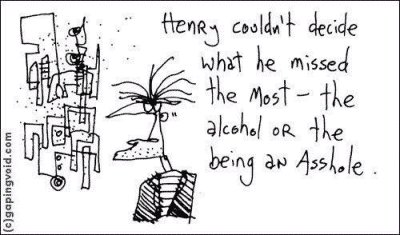 Henry couldn't decide
what he missed
the most – the
alcohol or the
being an Asshole.
(c)gapingvoid.com